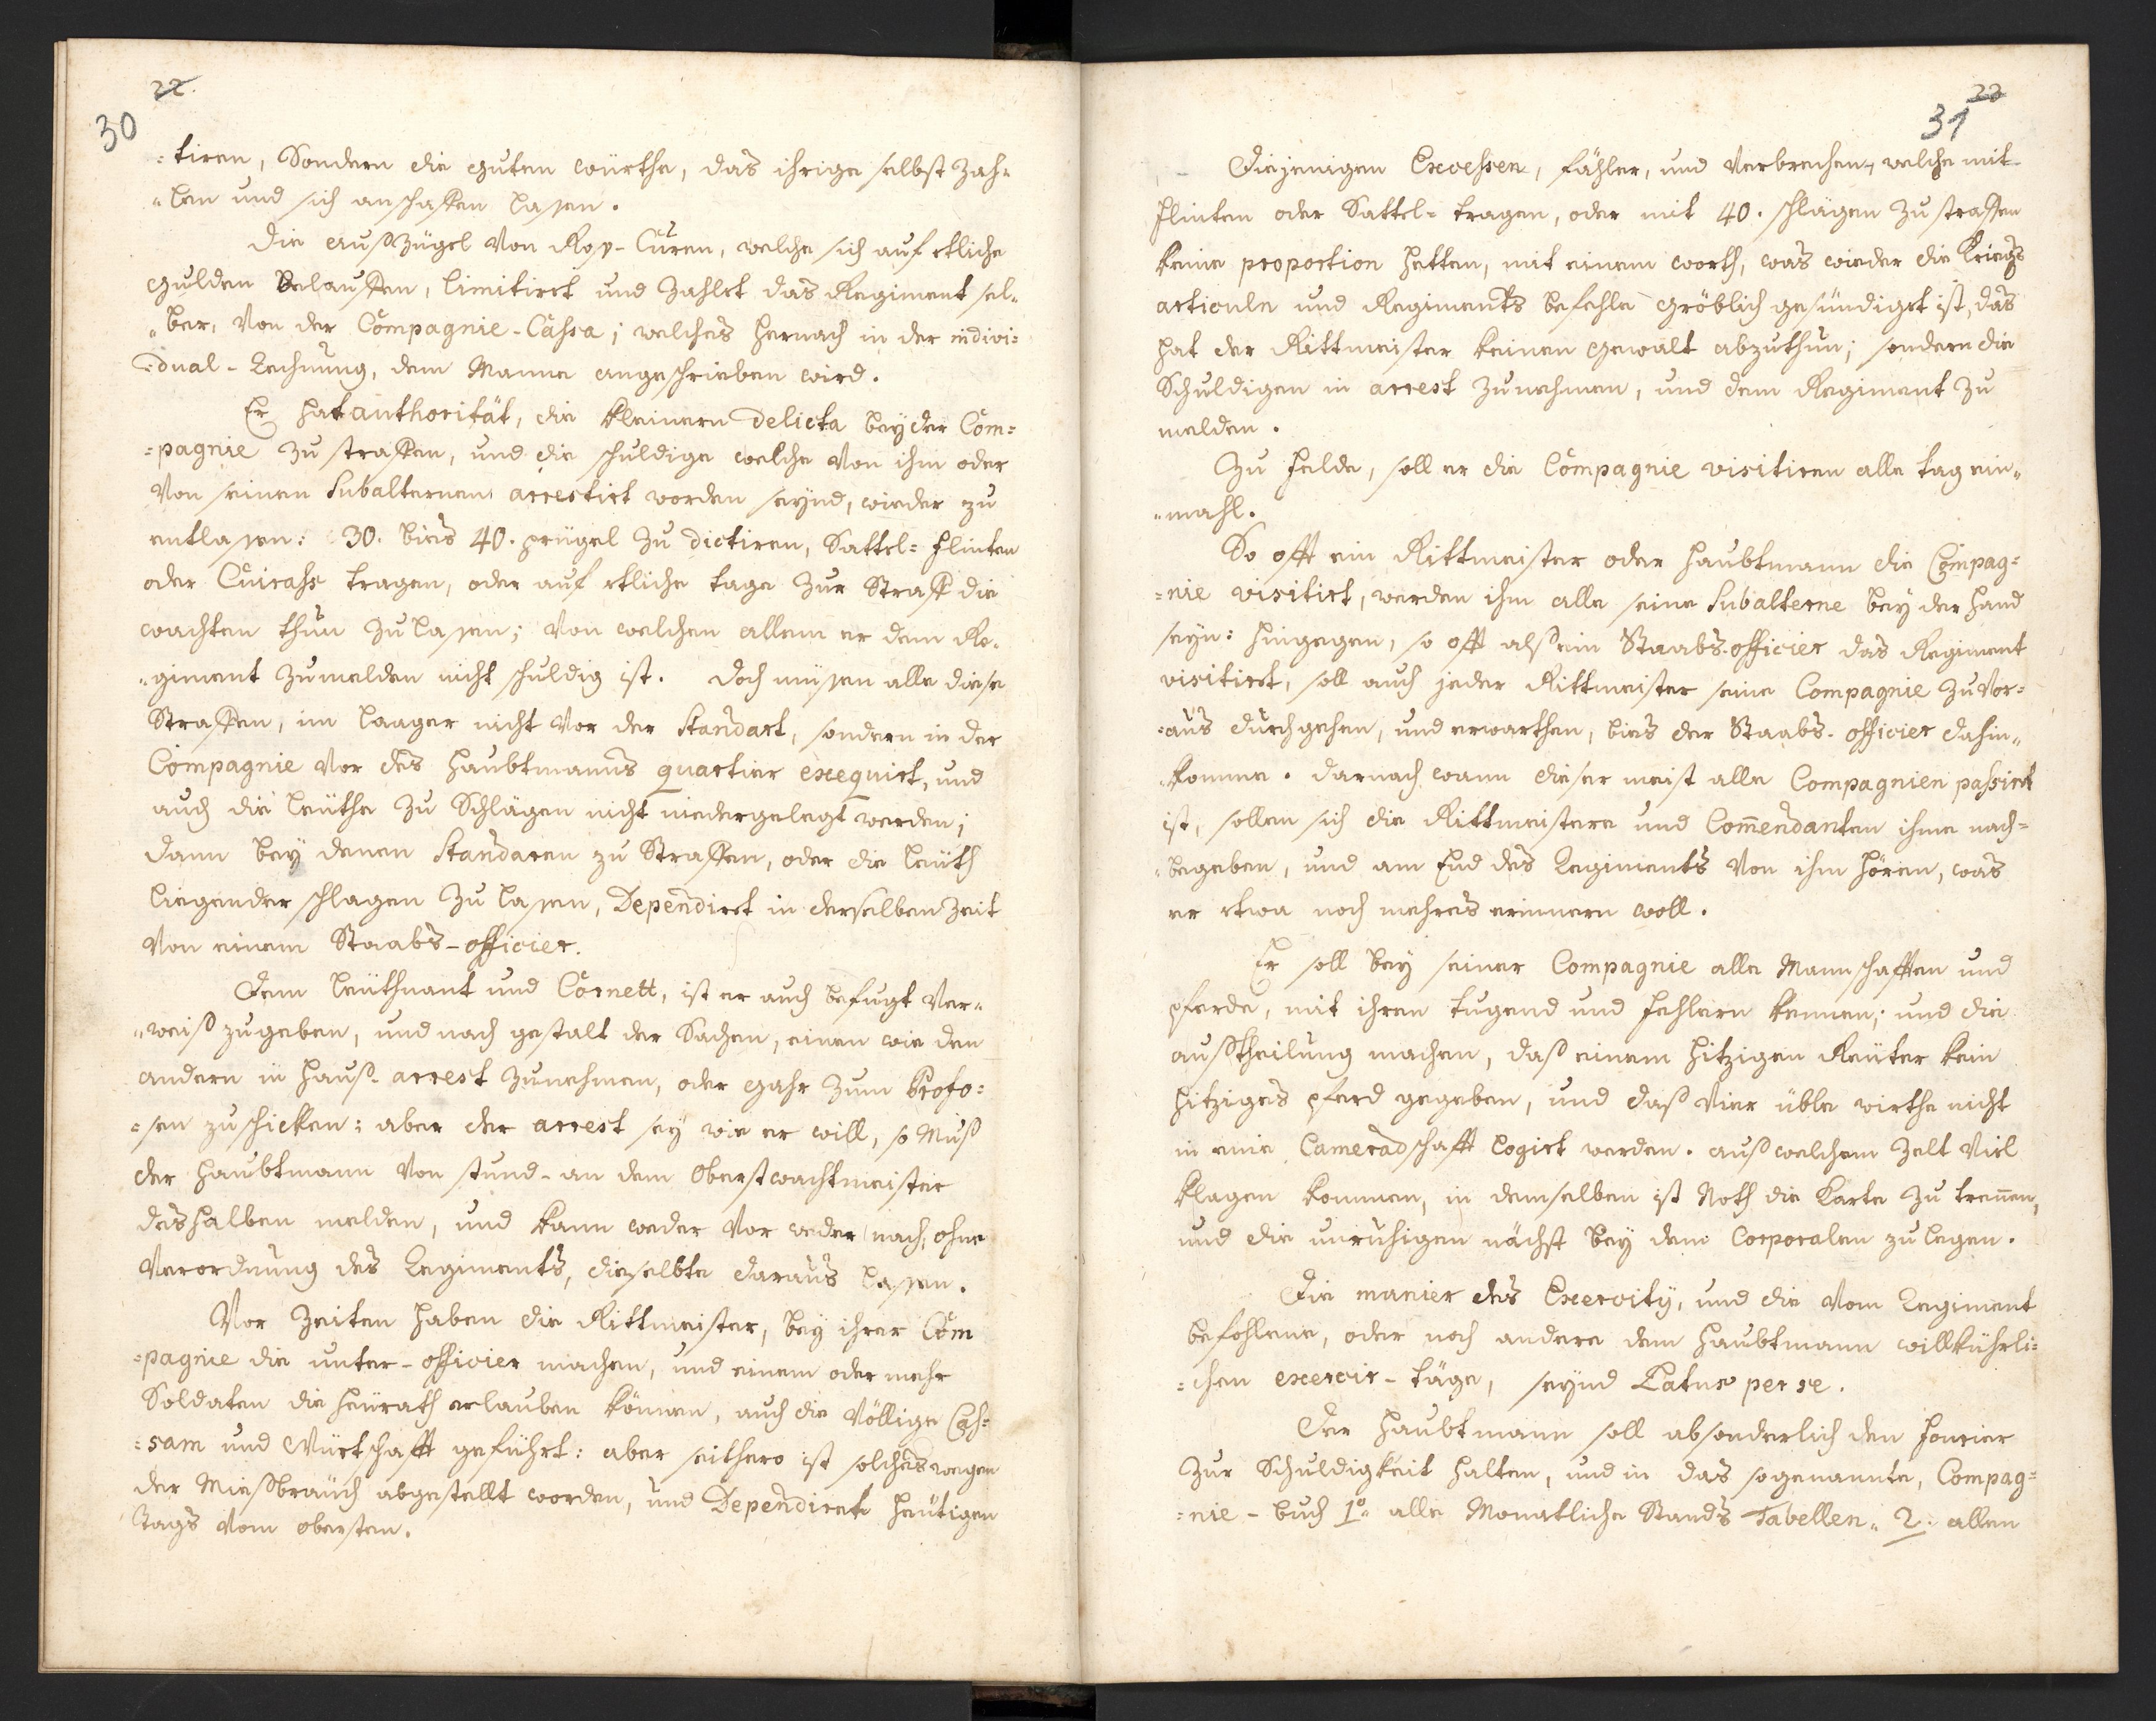 22.
30
=tiren, Sondern die guten würthe, das ihrige selbst zah=
"len und sich anschaffen laßen.
Die außzügel von Roß-Curen, welche sich auf etliche
gulden Belauffen, limitirt und zahlet das Regiment sel"
"ber, von der Compagnie-Cassa; welches hernach in der indivi=
=dual-Rechnung, dem Manne angeschrieben wird.
Er hat authorität, die kleinern Delicta bey der Com=
=pagnie zu straffen, und die schuldige welche von ihm oder
von seinen Subalternen arrestirt worden seynd, wieder zu
entlaßen: 30. bies 40. prügel zu dictiren, Sattel= flinten
oder Cuirass tragen, oder auf etliche tage zur Straff die
wachten thun zu laßen; von welchen allem er dem Re"
"giment zu melden nicht schuldig ist. Doch müßen alle diese
Straffen, im Laager nicht vor der Standart, sondern in der
Compagnie vor des Haubtmanns quartier exequirt, und
auch die Leüthe zu Schlägen nicht niedergelegt werden;
dann bey denen Standaren zu Straffen, oder die Leüth
liegender schlagen zu laßen, Dependiret in derselben Zeit
von einem Staabs-officier.
Dem Leüthnant und Cornett, ist er auch befugt Ver"
"weiß zu geben, und nach gestalt der Sachen, einen wie den
andern in Hauß-arrest zu nehmen, oder gahr zum Profo=
=sen zu schicken: aber der arrest sey wie er will, so Muß
der Haubtmann von stund-an dem Oberstwachtmeister
deshalben melden, und kann weder vor weder nach, ohne
Verordnung des Regiments, dieselbte daraus laßen.
Vor Zeiten haben die Rittmeister, bey ihrer Com
=pagnie die unter-officier machen, und einem oder mehr
Soldaten die Heürath erlauben können, auch die völlige Cas=
=sam und Würtschafft geführt: aber seithero ist solches wegen
der Mießbrauch abgestellt worden, und Dependiret heütigen
Tags vom obersten.
23
31
Diejenigen Excessen, fähler, und Verbrechen, welche mit
flinten oder Sattel= tragen, oder mit 40. schlägen zu straffen
keine proportion hetten, mit einem worth, was wieder die Kriegs
articule und Regiments befehle gröblich gesündiget ist, das
hat der Rittmeister keinen gewalt abzuthun; sondern die
Schuldigen in arrest zu nehmen, und dem Regiment zu
melden.
Zu Felde, soll er die Compagnie visitiren alle tag ein"
"mahl.
So offt ein Rittmeister oder Haubtmann die Compag=
=nie visitirt, werden ihm alle seine Subalterne bey der Hand
seyn: hingegen, so offt alß ein Staabs-officier das Regiment
visitiret, soll auch jeder Rittmeister seine Compagnie zu vor=
=aus durchgehen, und erwarthen, bies der Staabs-officier dahin"
"komme. Darnach wann dieser meist alle Compagnien passiret
ist, sollen sich die Rittmeistere und Com̅endanten ihme nach=
"begeben, und am End des Regiments von ihm hören, was
er etwa noch mehres erinnern woll.
Er soll bey seiner Compagnie alle Mannschafften und
pferde, mit ihren tugend und fehlern kennen; und die
außtheilung machen, daß einem hitzigen Reüter kein
hitziges pferd gegeben, und daß vier üble wirthe nicht
in eine Cameradschafft logirt werden. auß welchem Zelt viel
klagen kommen, in demselben ist Noth die Karte zu tren̅en,
und die unruhigen nächst bey dem Corporalen zu legen.
Die manier des Exercity, und die vom Regiment
befohlene, oder noch andere dem Haubtmann willkührli=
=chen exercir-täge, seynd Latus per se.
Der Haubtmann soll absonderlich den Fourier
zur Schuldigkeit halten, und in das sogenannte, Compag=
=nie-buch 1º alle Monatliche Stands Tabellen" 2. allen